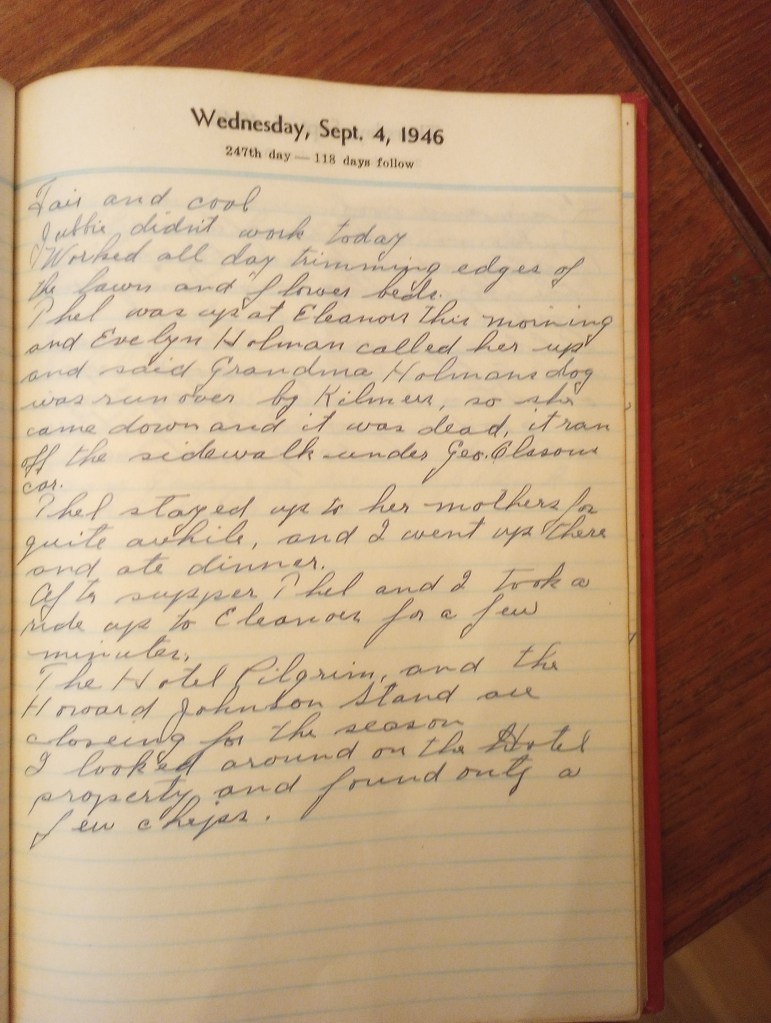 Wednesday, Sept. 4, 1946
247th day — 118 days follow
Fair and cool
Jubbie didn't work today
Worked all day trimming edges of
the lawn and flower beds.
Phel was up at Eleanors this morning
and Evelyn Holman called her up
and said Grandma Holmans dog
was run over by Kilmers, so she
came down and it was dead, it ran
off the sidewalk under Geo. Olssons
car.
Phel stayed up to her mothers for
quite awhile, and I went up there
and ate dinner.
After supper Phel and I took a
ride up to Eleanors for a few
minutes.
The Hotel Pilgrim, and the
Howard Johnson Stand are
closeing for the season
I looked around on the Hotel
property and found only a
few chips.